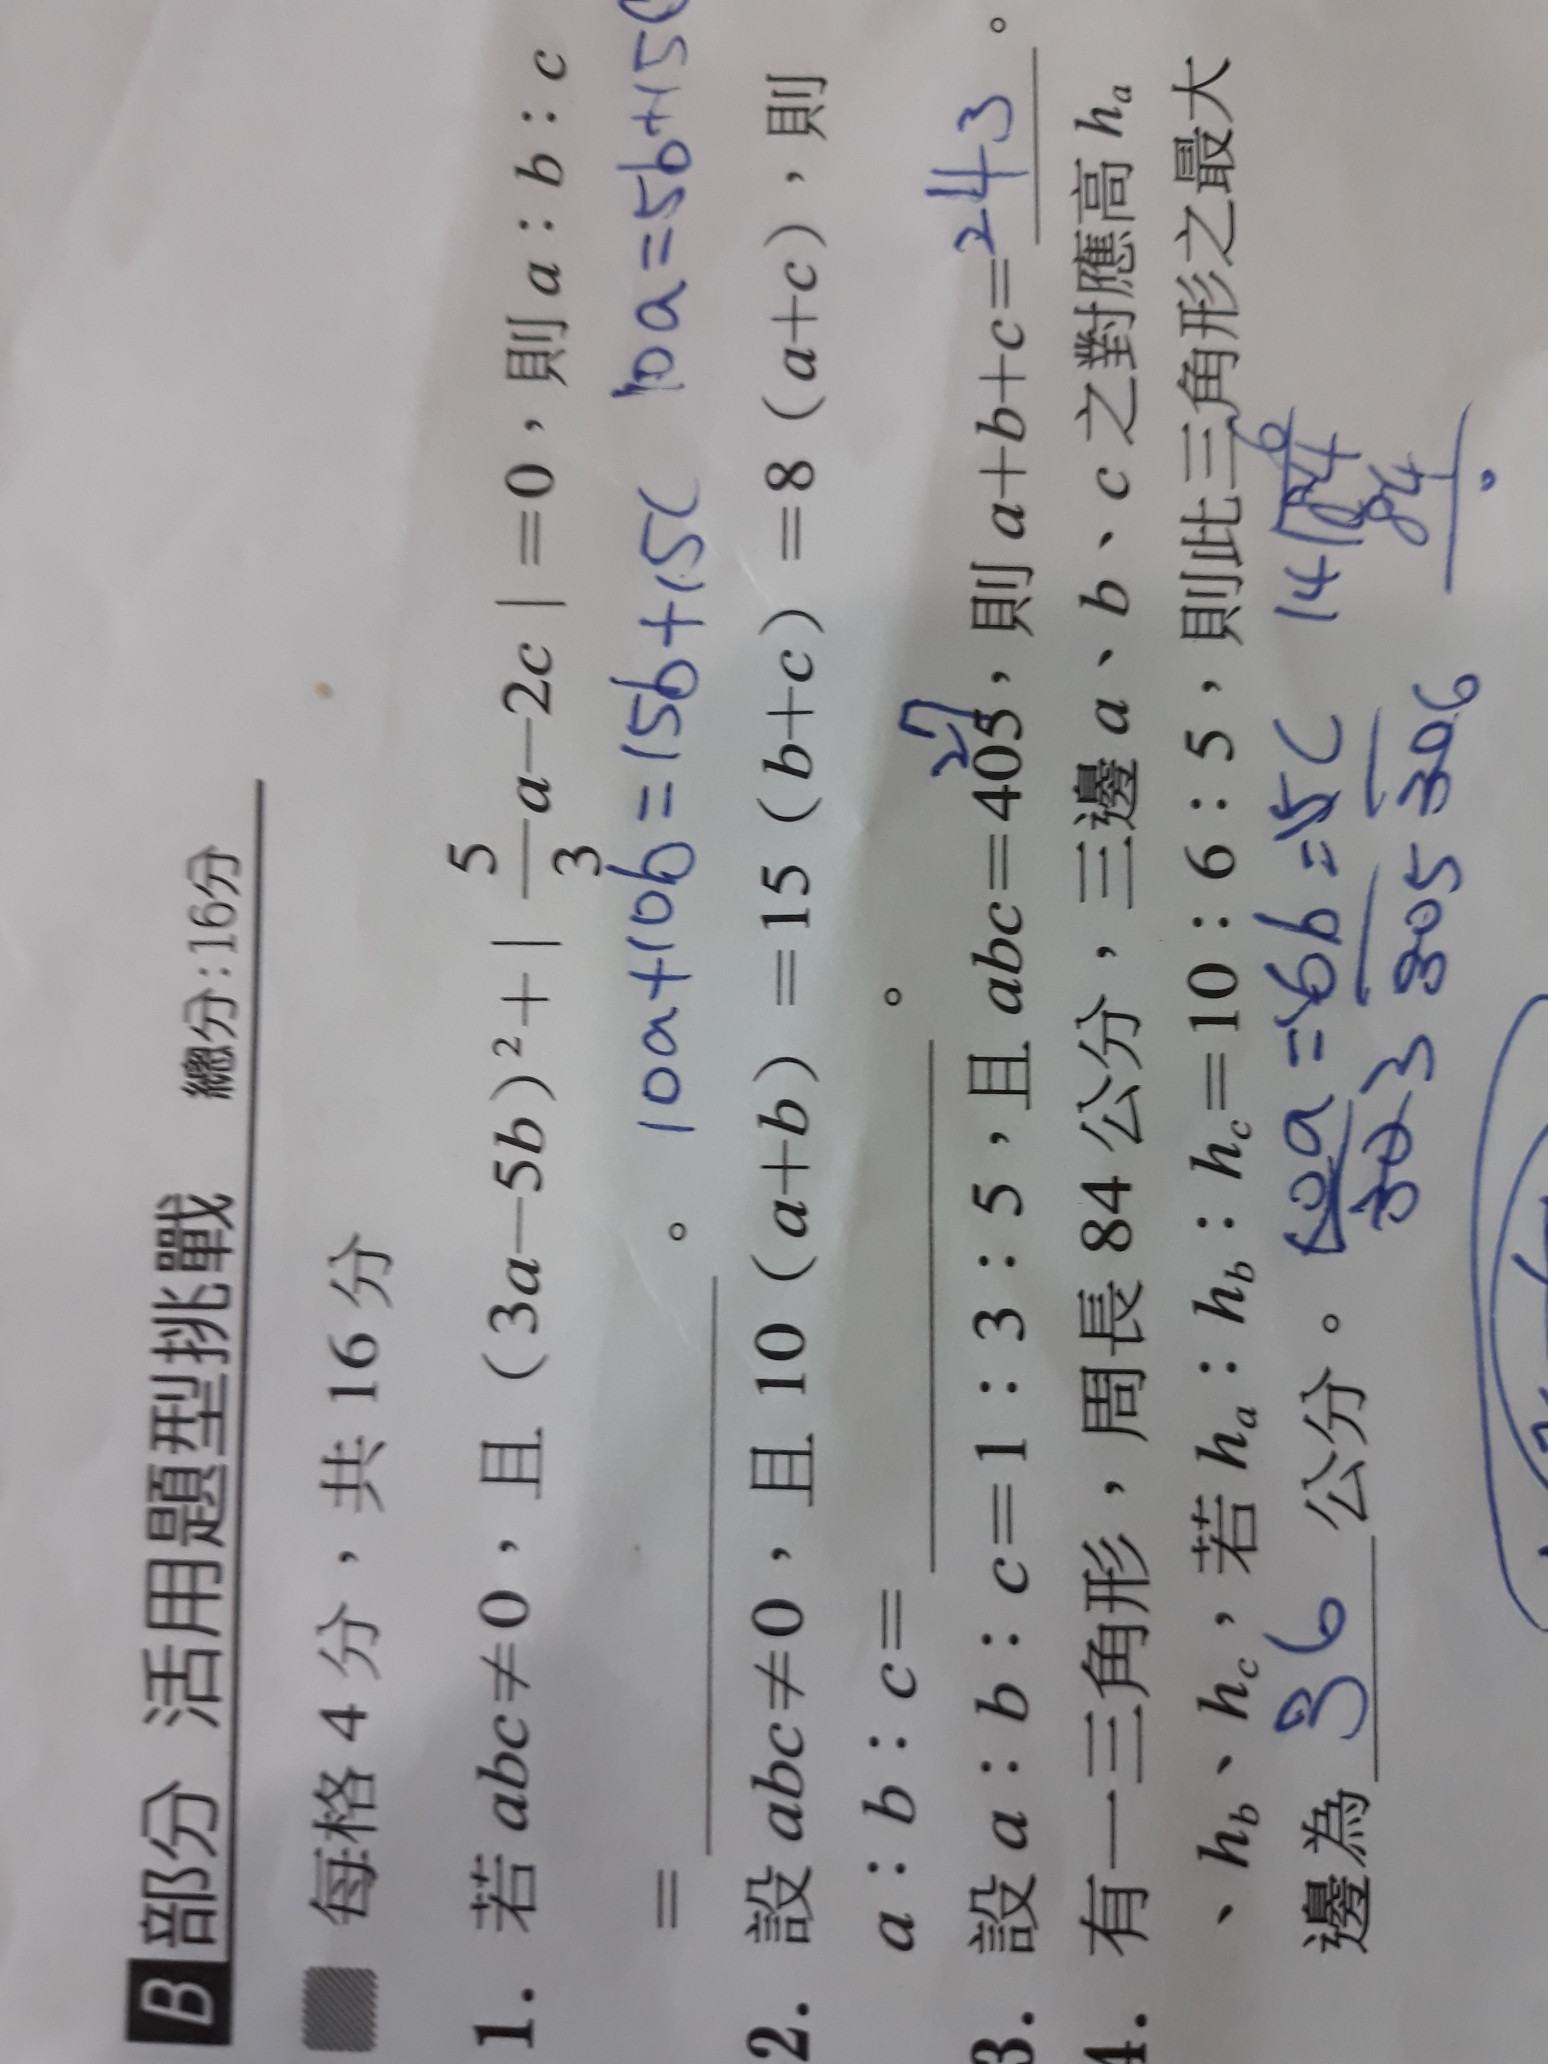 B 部分 活用題型挑戰 總分:16分
每格 4 分,共 16 分
1. 若 abc≠0,且(3a−5b)²+|5/3 a−2c|=0,則 a:b:c
= 。
10a+10b=15b+15c 10a=5b+15
2. 設 abc≠0,且 10(a+b)=15(b+c)=8(a+c),則
a:b:c= 。
27
3. 設 a:b:c=1:3:5,且 abc=405,則 a+b+c=243。
4. 有一三角形,周長 84 公分,三邊 a、b、c 之對應高 hₐ
、h_b、h_c,若 hₐ:h_b:h_c=10:6:5,則此三角形之最大
邊為 36 公分。
10a=6b=5c
30 30 30
3 5 6
6
14 84
84